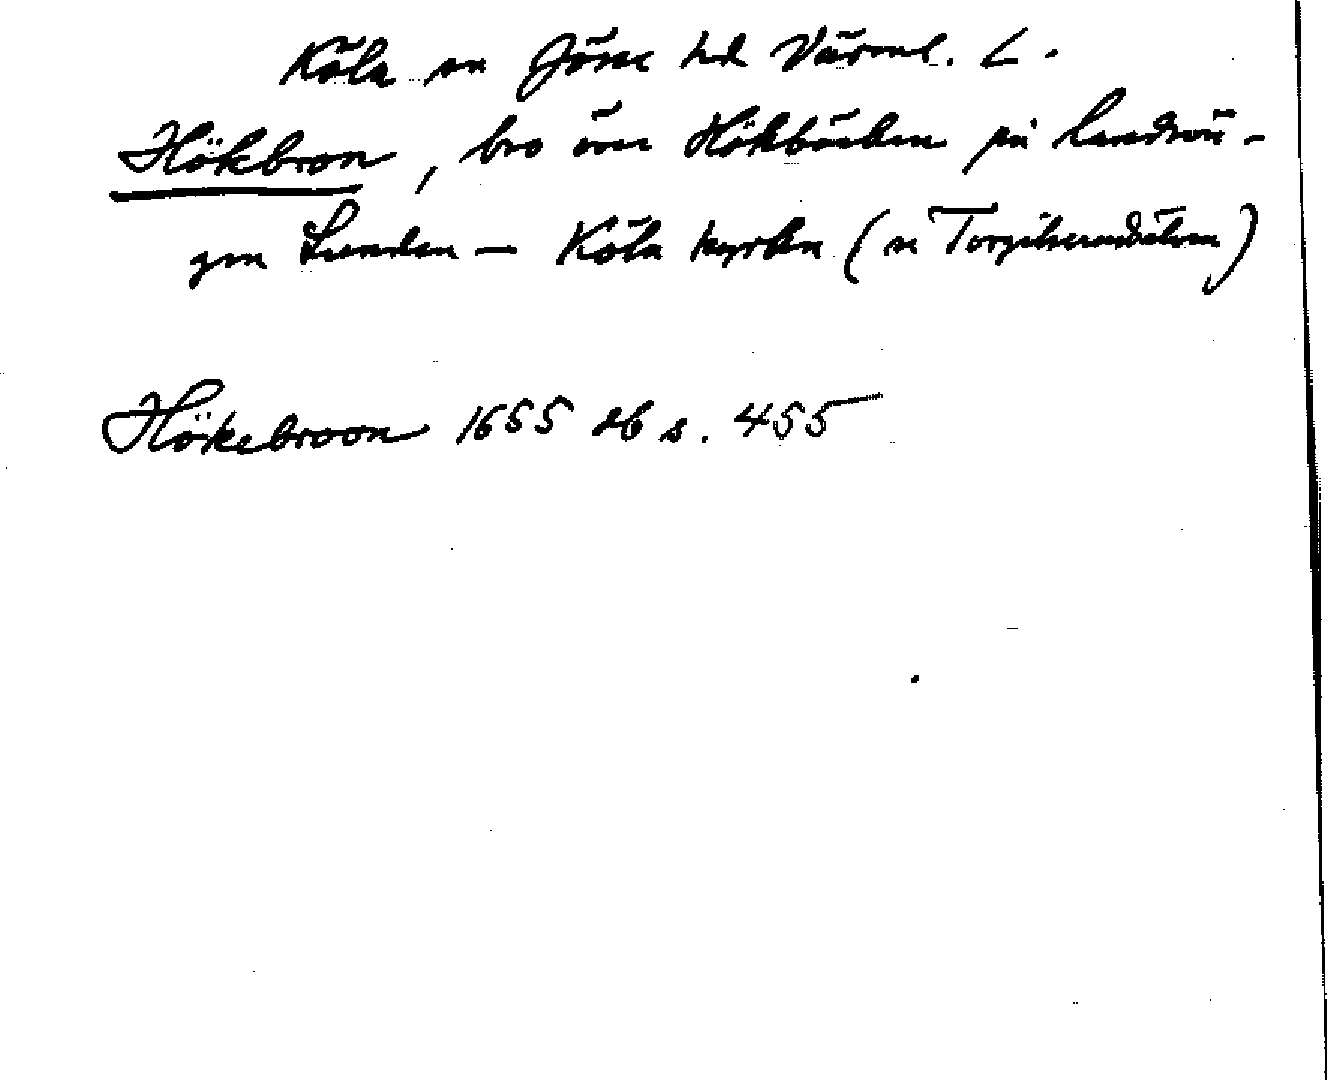 Köla sn Jösse hd Värml. L.
Hökbron, bro över Hökbäcken på landsvä-
gen Lunden – Köla kyrka (i
Hökebroon 1655 db s. 455